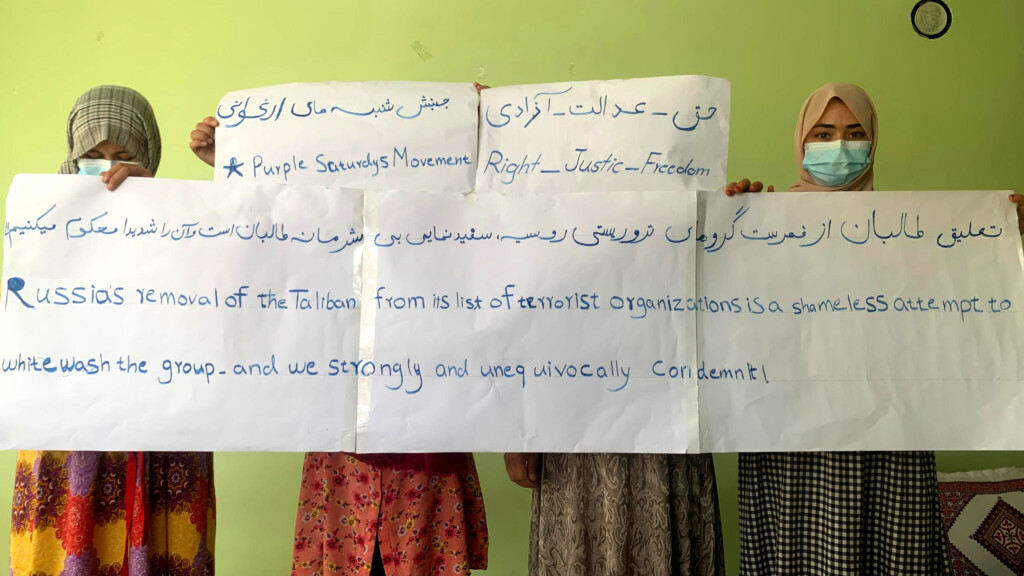 جنبش شنبه های ارغوانی
* Purple Saturdys Movement
حق - عدالت - آزادی
Right - Justic - Freedom
تعلیق طالبان از فهرست گروهای تروریستی روسیه، سفیدنمایی بی شرمانه طالبان است و آن را شدیدا محکوم میکنیم!
Russia's removal of the Taliban from its list of terrorist organizations is a shameless attempt to
whitewash the group - and we strongly and unequivocally condemn it!